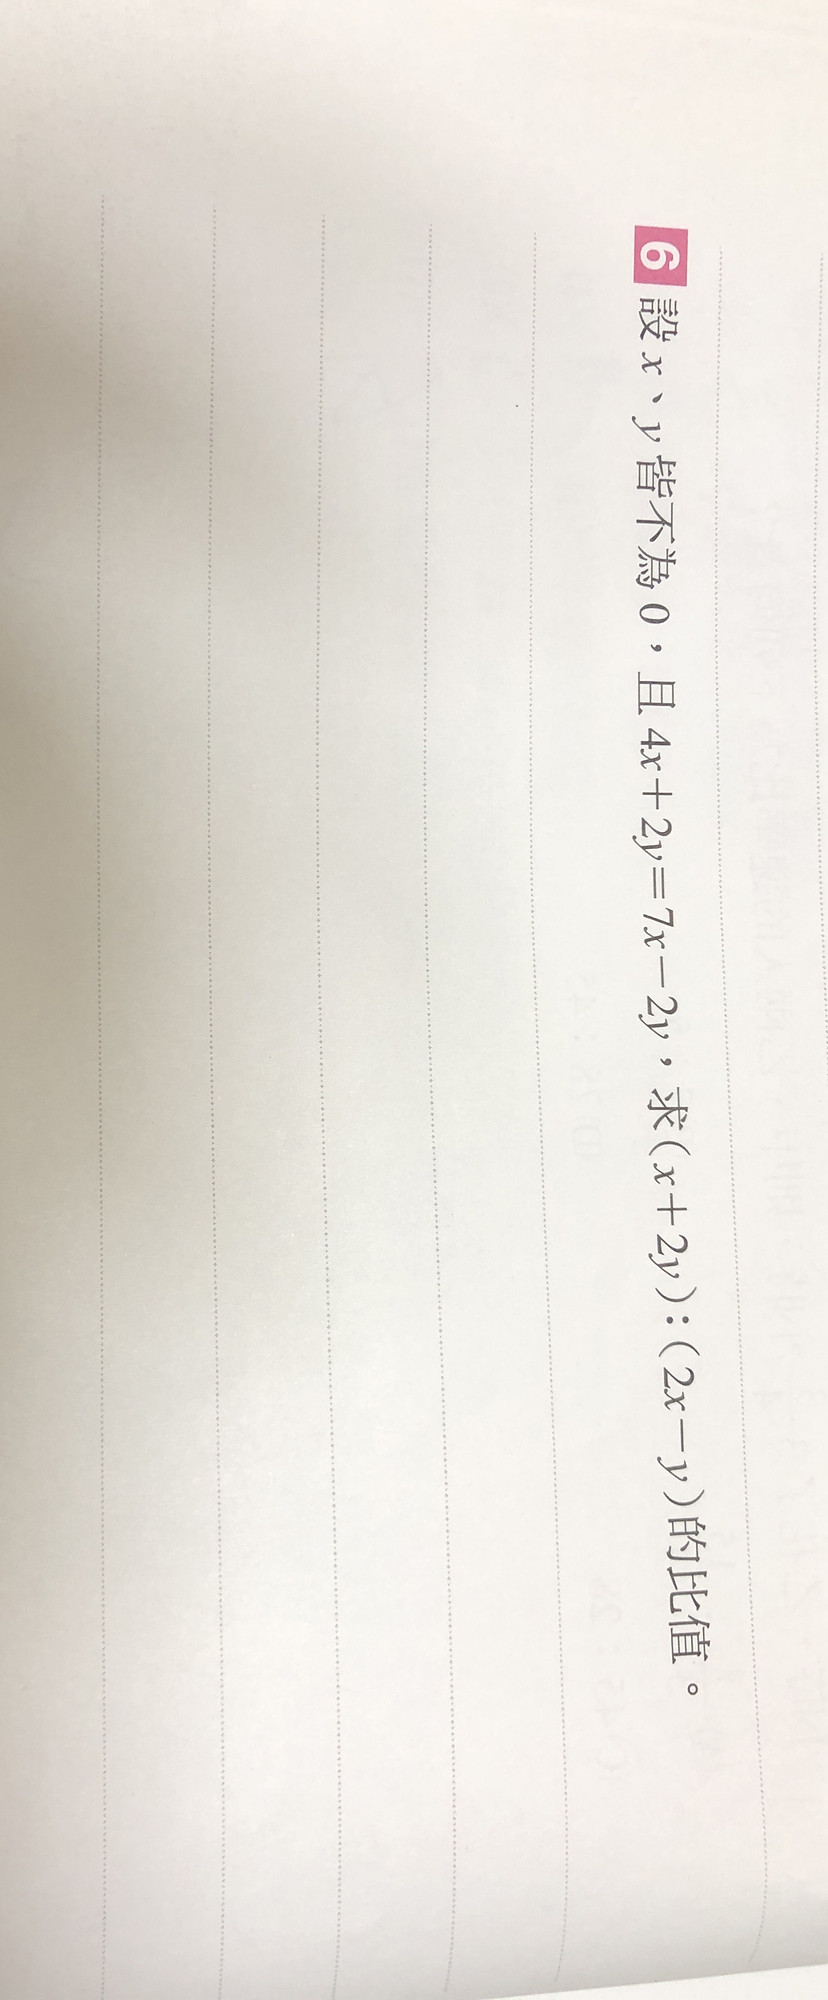 6 設 x、y 皆不為 0，且 4x＋2y＝7x－2y，求(x＋2y)：(2x－y)的比值。